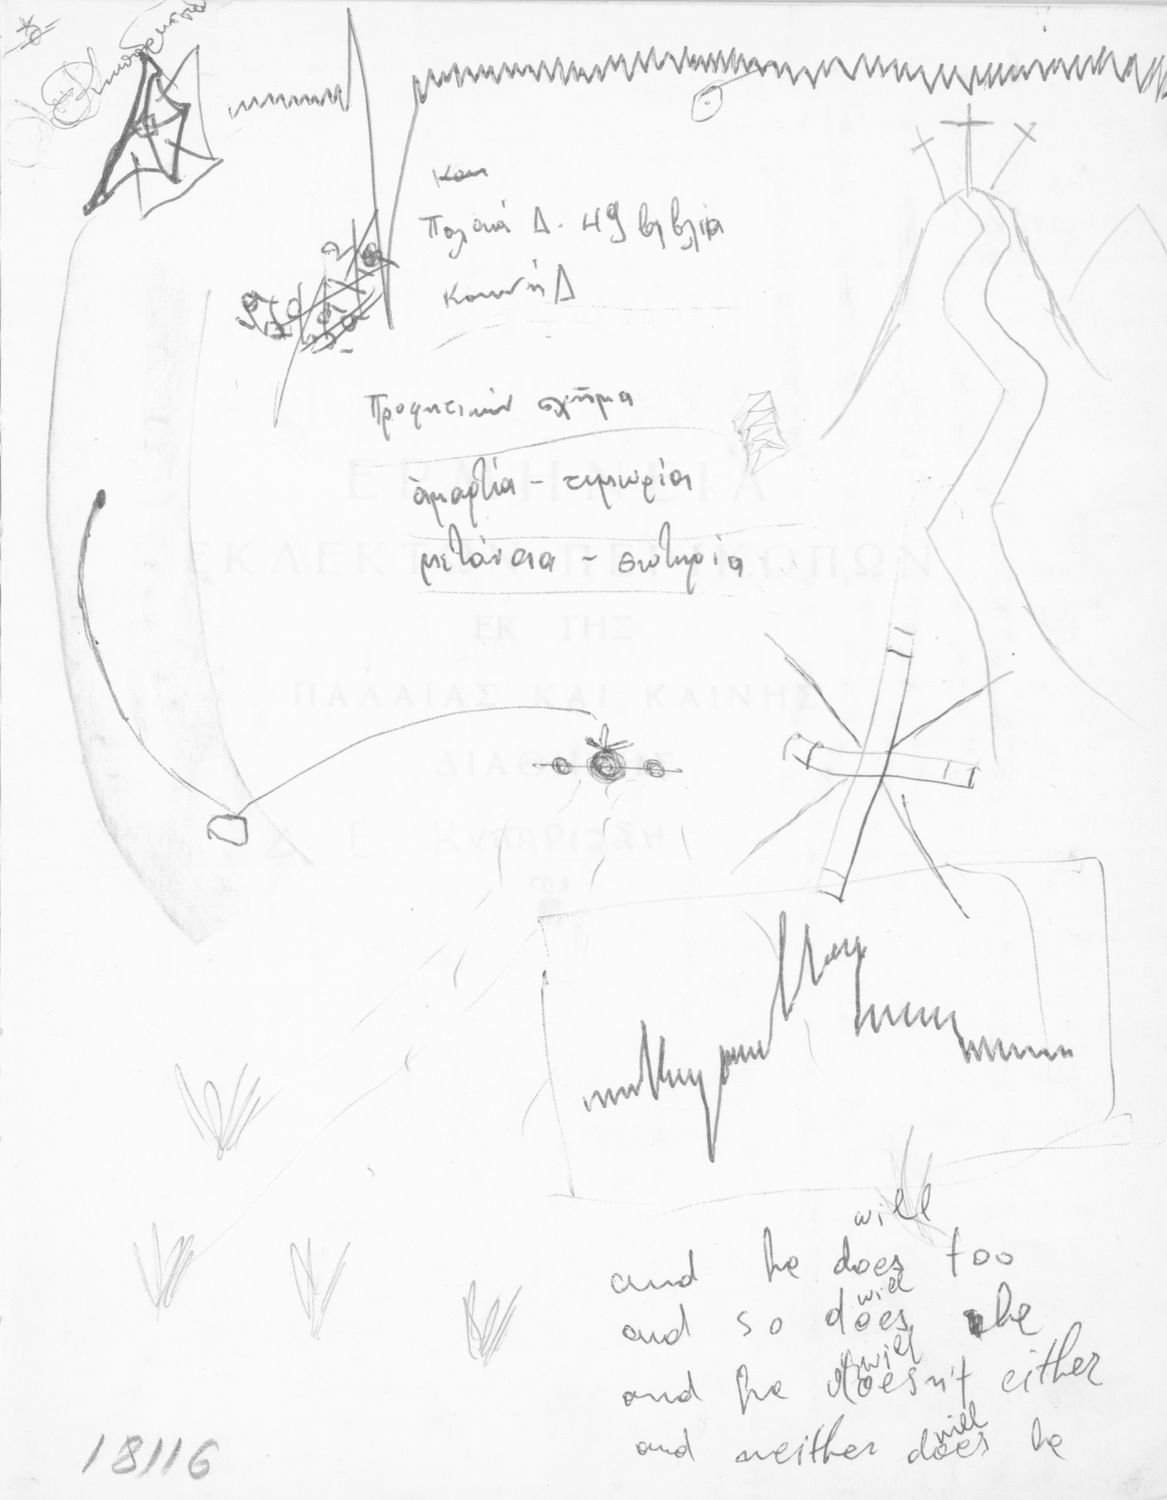 και
Παλαιά Δ. 49 βιβλία
Καινή Δ
Προφητικόν σχήμα
ἁμαρτία - τιμωρία
μετάνοια - σωτηρία
ΕΡΜΗΝΕΙΑ
ΕΚΛΕΚΤΩΝ ΠΕΡΙΚΟΠΩΝ
ΕΚ ΤΗΣ
ΠΑΛΑΙΑΣ ΚΑΙ ΚΑΙΝΗΣ
ΔΙΑΘΗΚΗΣ
will
and he does too
will
and so does he
will
and he doesn't either
will
and neither does he
18116